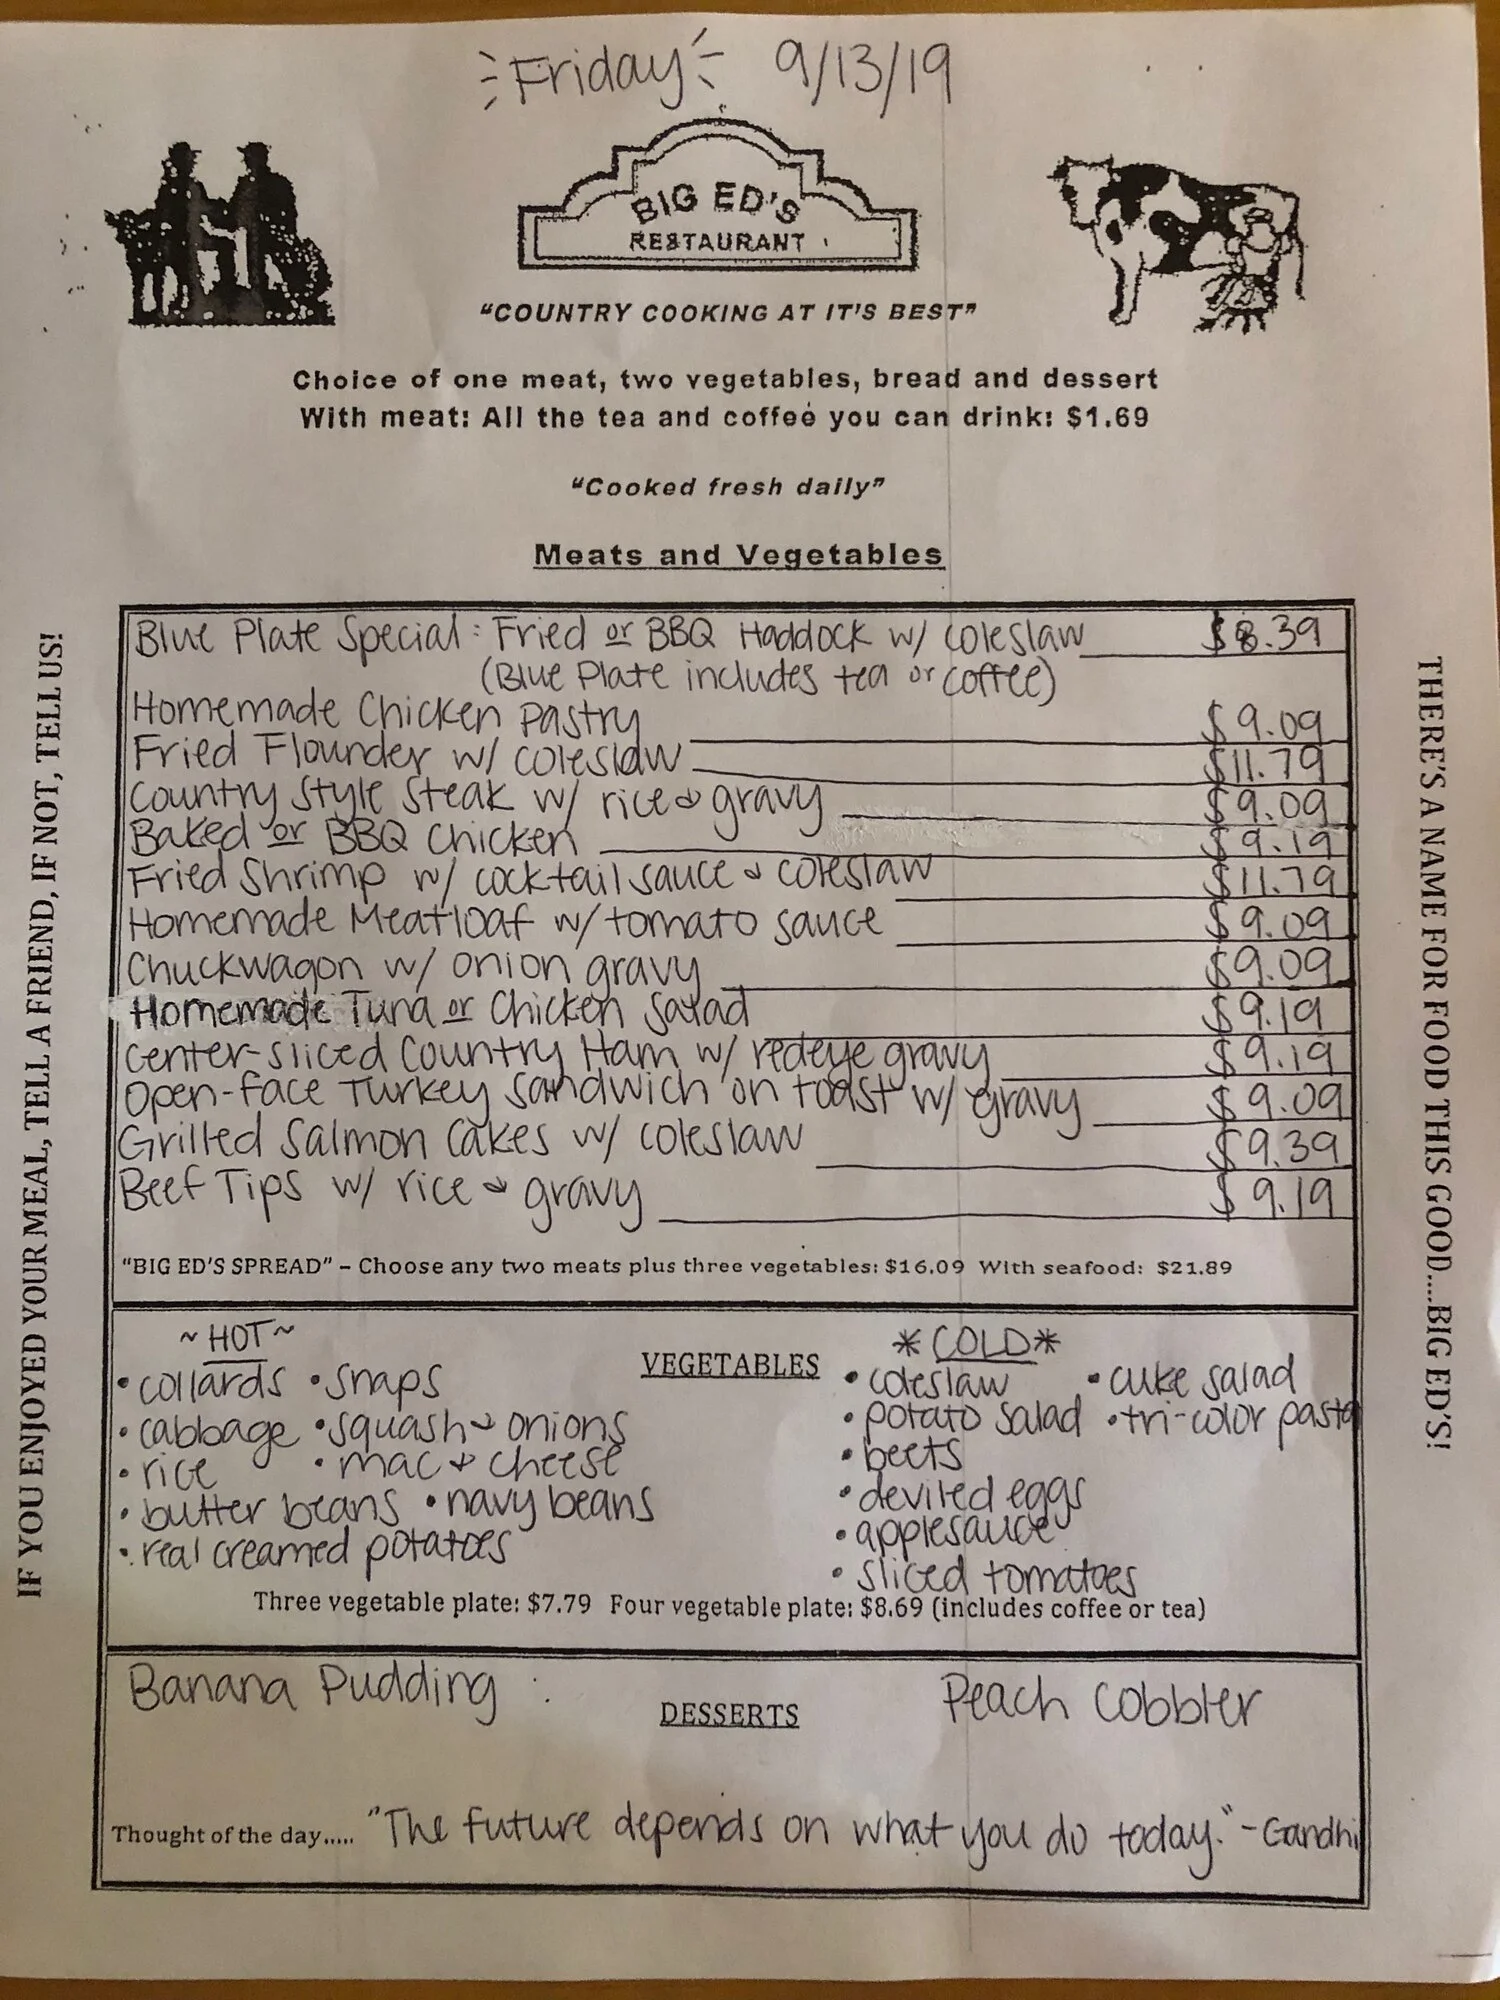 Friday 9/13/19
BIG ED'S
RESTAURANT
"COUNTRY COOKING AT IT'S BEST"
Choice of one meat, two vegetables, bread and dessert
With meat: All the tea and coffee you can drink: $1.69
"Cooked fresh daily"
Meats and Vegetables
Blue Plate Special: Fried or BBQ Haddock w/ coleslaw $8.39
(Blue Plate includes tea or coffee)
Homemade Chicken Pastry $9.09
Fried Flounder w/ coleslaw $11.79
Country Style Steak w/ rice & gravy $9.09
Baked or BBQ Chicken $9.19
Fried Shrimp w/ cocktail sauce & coleslaw $11.79
Homemade Meatloaf w/ tomato sauce $9.09
Chuckwagon w/ onion gravy $9.09
Homemade Tuna or Chicken Salad $9.19
Center-sliced Country Ham w/ redeye gravy $9.19
Open-Face Turkey Sandwich on toast w/ gravy $9.09
Grilled Salmon Cakes w/ coleslaw $9.39
Beef Tips w/ rice & gravy $9.19
"BIG ED'S SPREAD" – Choose any two meats plus three vegetables: $16.09 With seafood: $21.89
VEGETABLES
~HOT~
• collards • snaps
• cabbage • squash & onions
• rice • mac & cheese
• butter beans • navy beans
• real creamed potatoes
*COLD*
• coleslaw • cuke salad
• potato salad • tri-color pasta
• beets
• deviled eggs
• applesauce
• sliced tomatoes
Three vegetable plate: $7.79 Four vegetable plate: $8.69 (includes coffee or tea)
DESSERTS
Banana Pudding
Peach Cobbler
Thought of the day..... "The future depends on what you do today." -Gandhi
IF YOU ENJOYED YOUR MEAL, TELL A FRIEND, IF NOT, TELL US!
THERE'S A NAME FOR FOOD THIS GOOD....BIG ED'S!